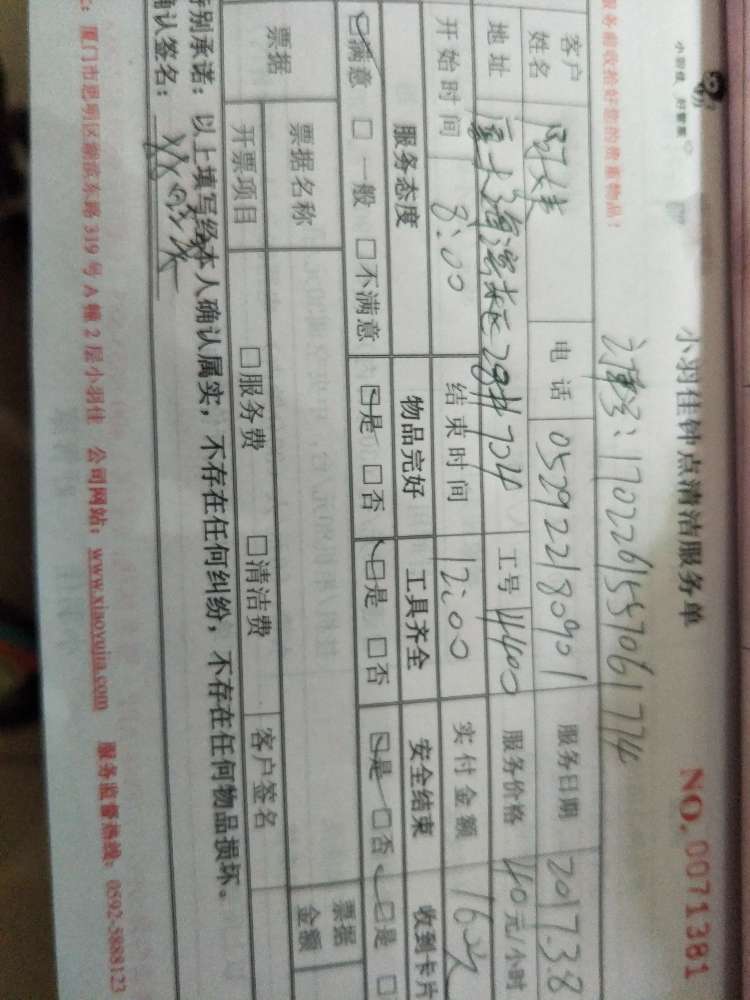 小羽佳 好管家
小羽佳钟点清洁服务单
NO. 0071381
服务前收拾好您的贵重物品！
170226155706177 4
客户姓名 电话 05292218090 1 服务日期 2017.3.8
地址 厦大海滨东区28# 704 工号 4400 服务价格 40元/小时
开始时间 8:00 结束时间 12:00 实付金额 160元
服务态度 物品完好 工具齐全 安全结束 收到卡片
☑满意 □一般 □不满意 ☑是 □否 ☑是 □否 ☑是 □否 ☑是 □
票据 票据名称 票据金额
开票项目 □服务费 □清洁费 客户签名
特别承诺：以上填写经本人确认属实，不存在任何纠纷，不存在任何物品损坏。
确认签名：
厦门市思明区湖滨东路 319 号 A 幢 2 层小羽佳 公司网站：www.xiaoyujia.com 服务监督热线：0592-5888123